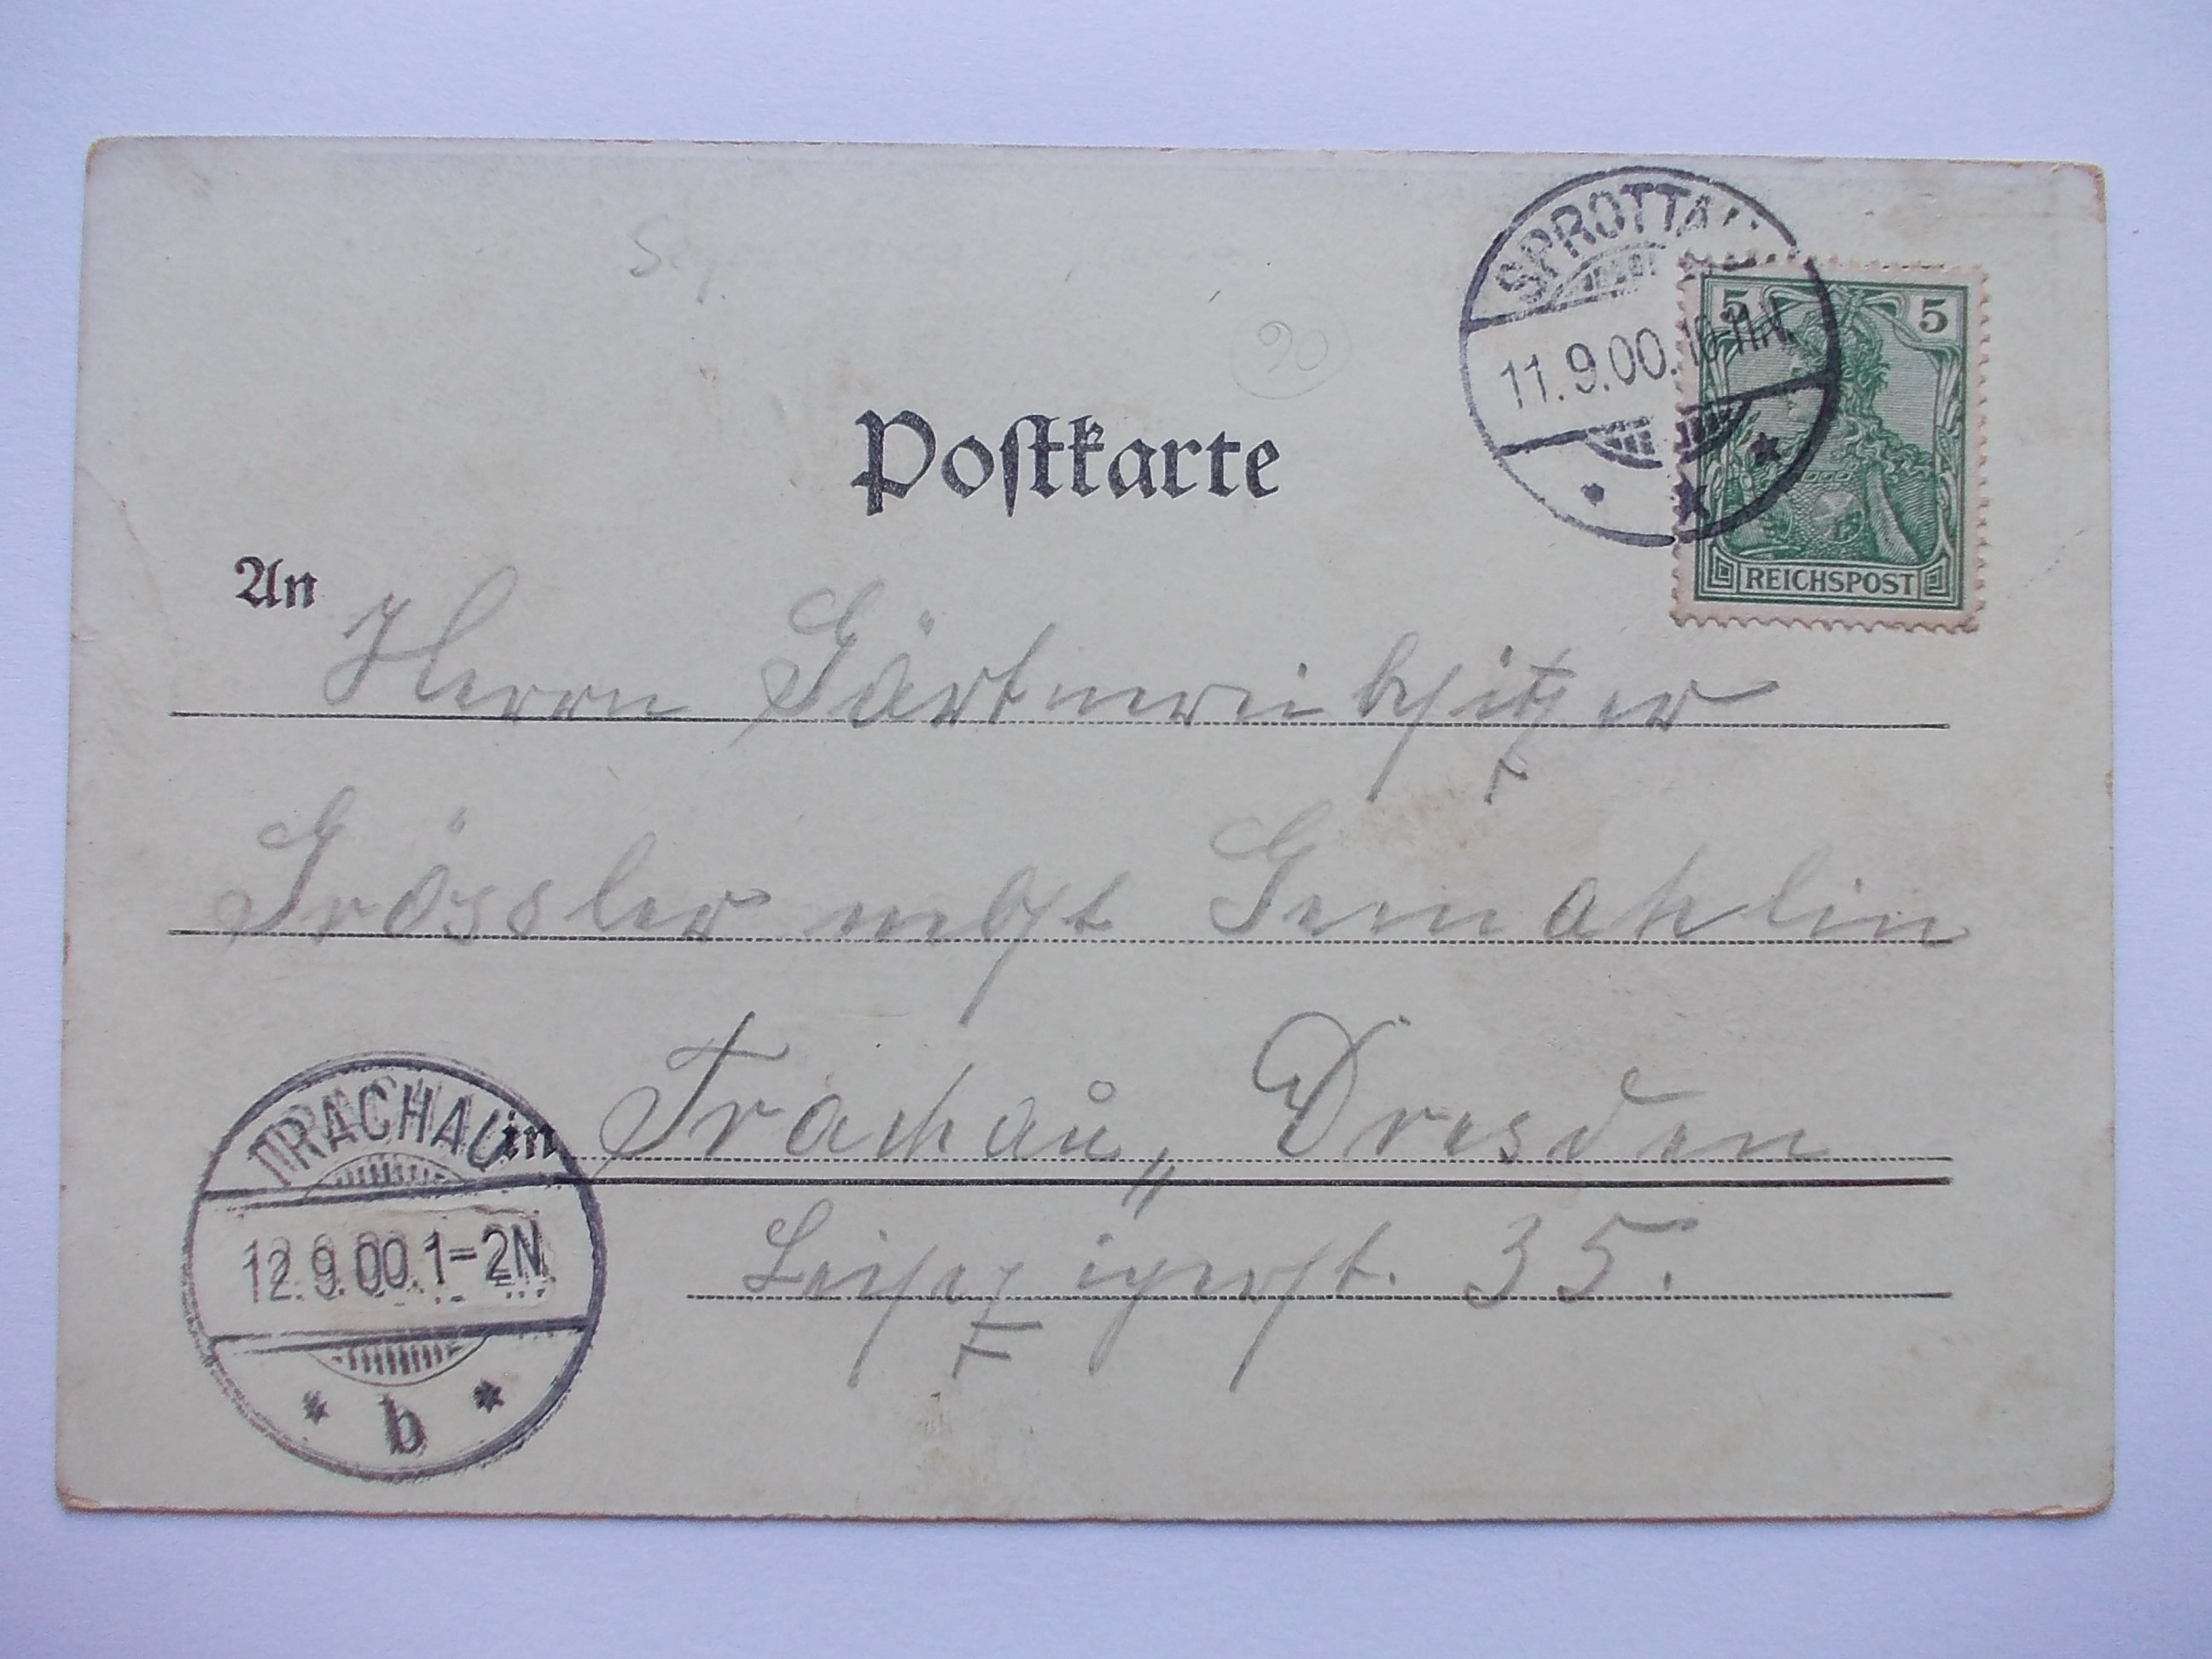 SPROTTAU
11.9.00.10-11N.
5 5
REICHSPOST
90
Postkarte
An Herrn Gärtnereibesitzer
Grössler nebst Gemahlin
in Trachau, Dresden
Leipzigerst. 35.
TRACHAU
12.9.00.1-2N.
* b *